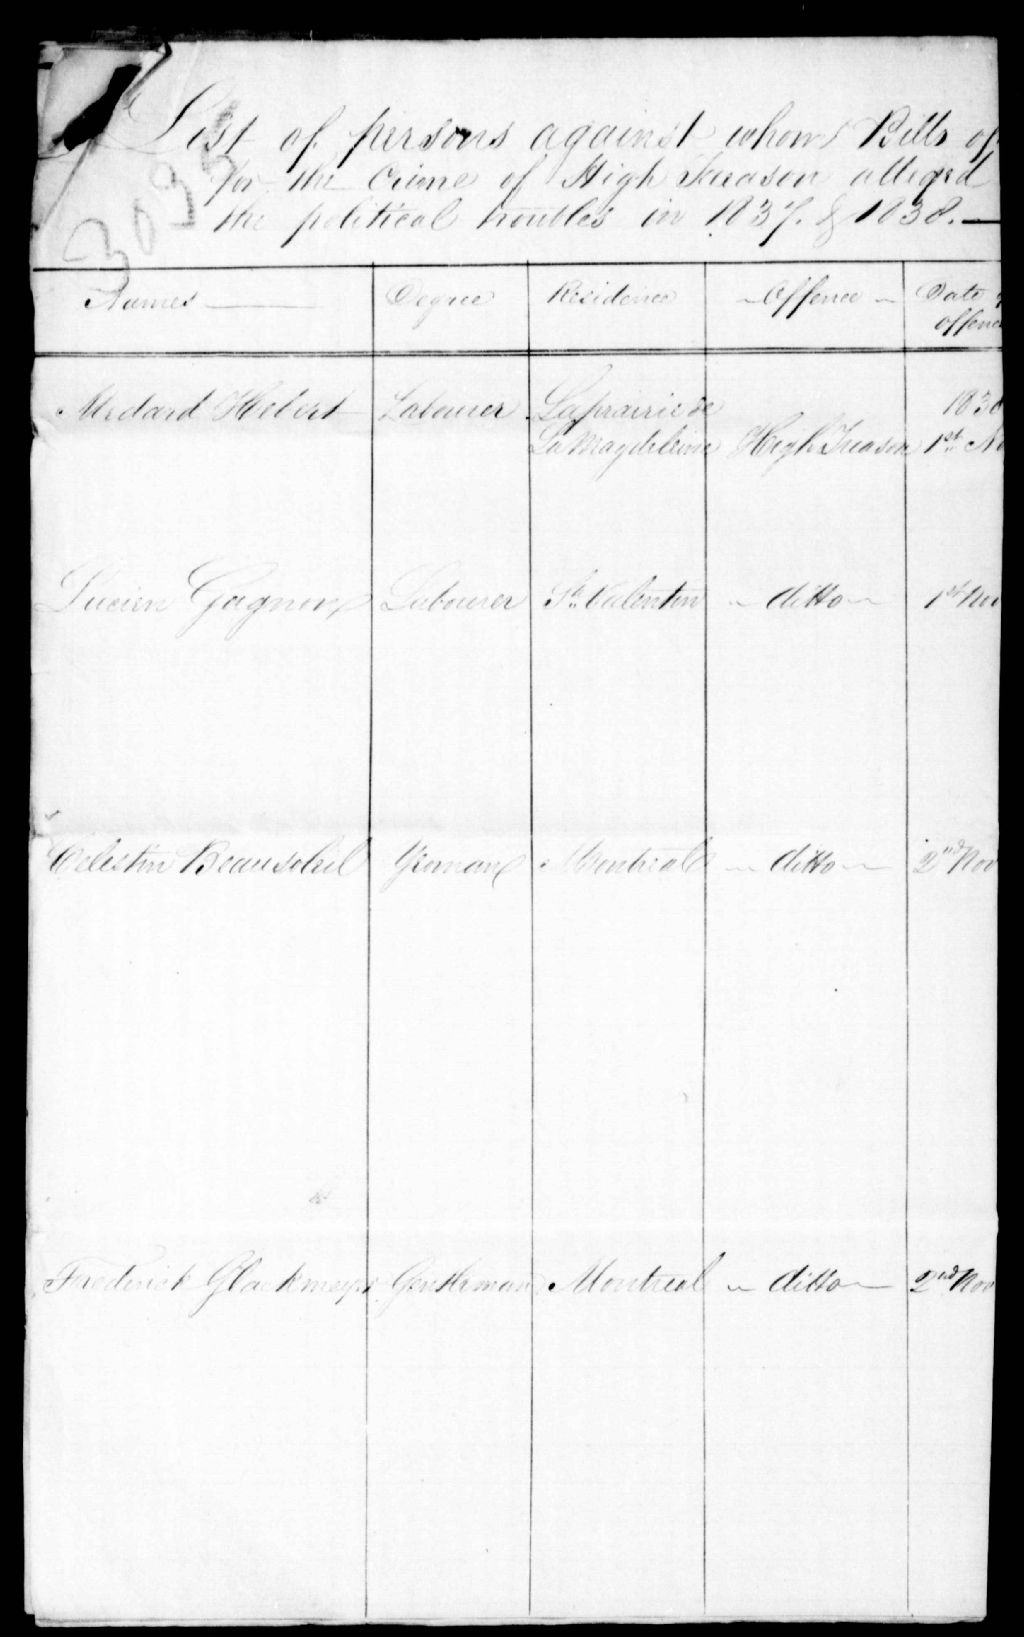 List of persons against whom Bills of
for the Crime of High Treason alleged
the political troubles in 1837. & 1838.—
Names — Degree Residence Offence Date
offence
Medard Hebert Labourer Laprairie de 1838
La Magdeleine High Treason 1st No
Lucien Gagnon Labourer St. Valentin ditto 1st Nov
Celestin Beausoleil Yeoman Montreal ditto 2nd Nov
Frederick Glackmeyer Gentleman Montreal ditto 2nd Nov